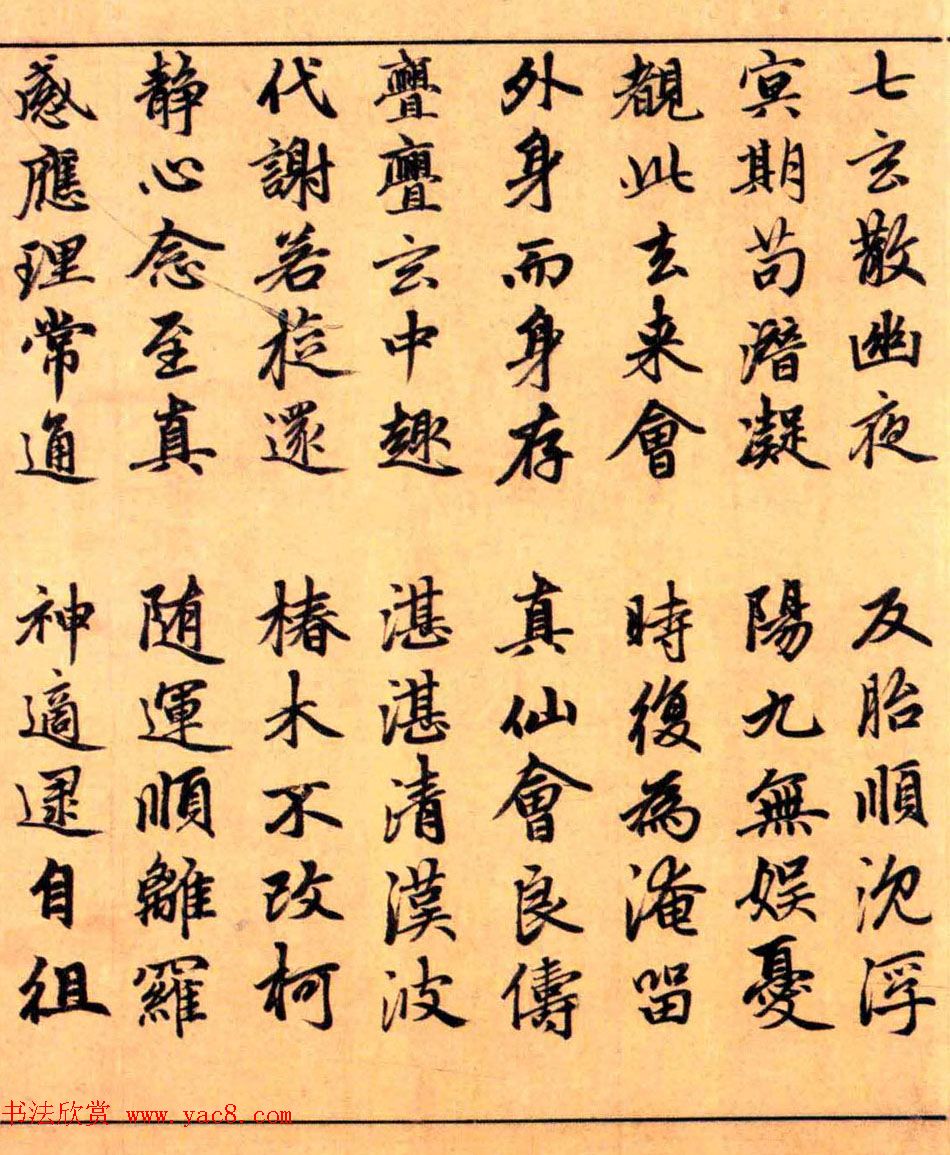 七玄散幽夜 反胎順沉浮
冥期苟潛凝 陽九無娱憂
覩此去来會 時復為淹留
外身而身存 真仙會良儔
亹亹玄中趣 湛湛清漢波
代謝若旋還 椿木不改柯
静心念至真 随運順離羅
感應理常通 神適逮自徂
书法欣赏 www.yac8.com